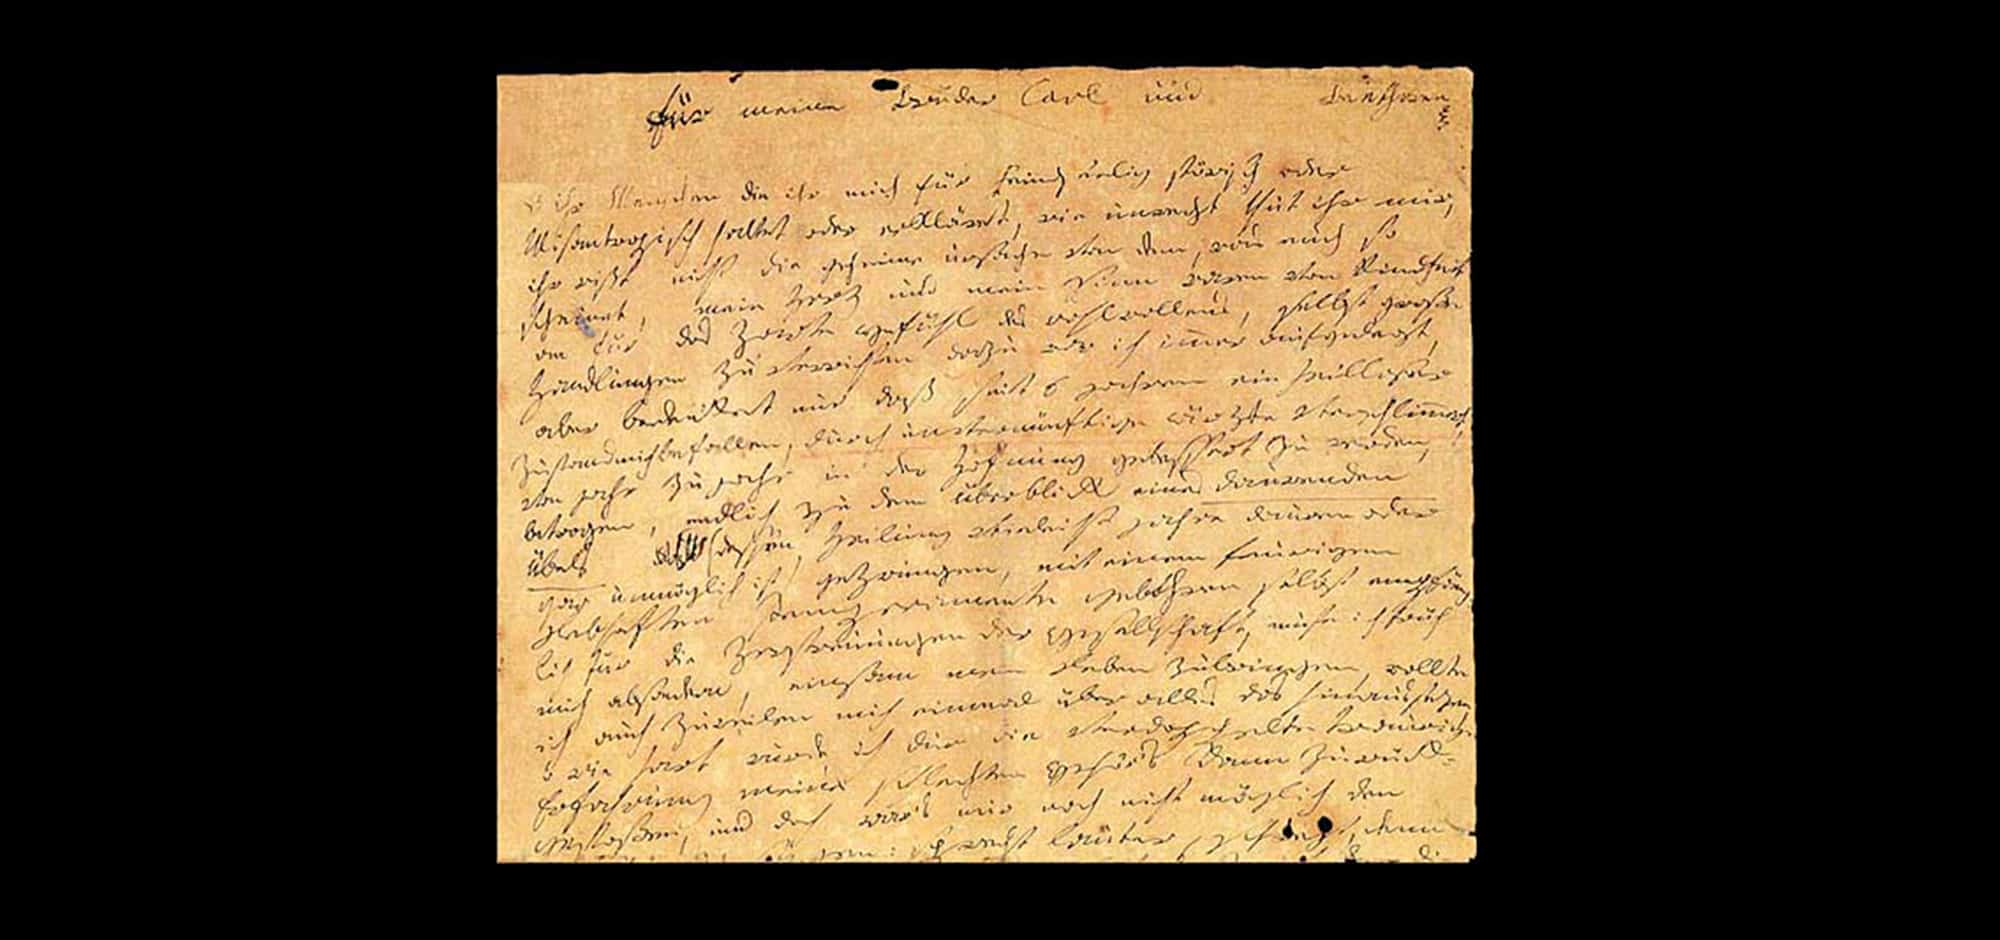 für meine Brüder Carl und Beethowen
O ihr Menschen die ihr mich für Feindseelig störisch oder
Misantropisch haltet oder erkläret, wie unrecht thut ihr mir,
ihr wißt nicht die geheime ursache von dem, was euch so
scheinet, mein Herz und mein Sinn waren von Kindheit
an für das Zarte gefühl des wohlwollens, selbst große
Handlungen zu verrichten dazu war ich immer aufgelegt,
aber bedenket nur daß seit 6 jahren ein heilloser
Zustand mich befallen, durch unvernünftige ärzte verschlimmert
von jahr zu jahr in der Hofnung gebessert zu werden,
betrogen, endlich zu dem überblick eines daurenden
Übels (dessen Heilung vieleicht jahre dauren oder
gar unmöglich ist) gezwungen, mit einem feurigen
Lebhaften Temperamente gebohren selbst empfäng
lich für die Zerstreuungen der Gesellschaft, muste ich früh
mich absondern, einsam mein Leben zubringen, wollte
ich auch zuweilen mich einmal über alles das hinaussezen
o wie hart wurde ich dur die verdoppelte traurige
Erfahrung meines schlechten Gehör's dann zurück-
gestoßen, und doch war's mir noch nicht möglich den
sprecht lauter, schreyt, denn